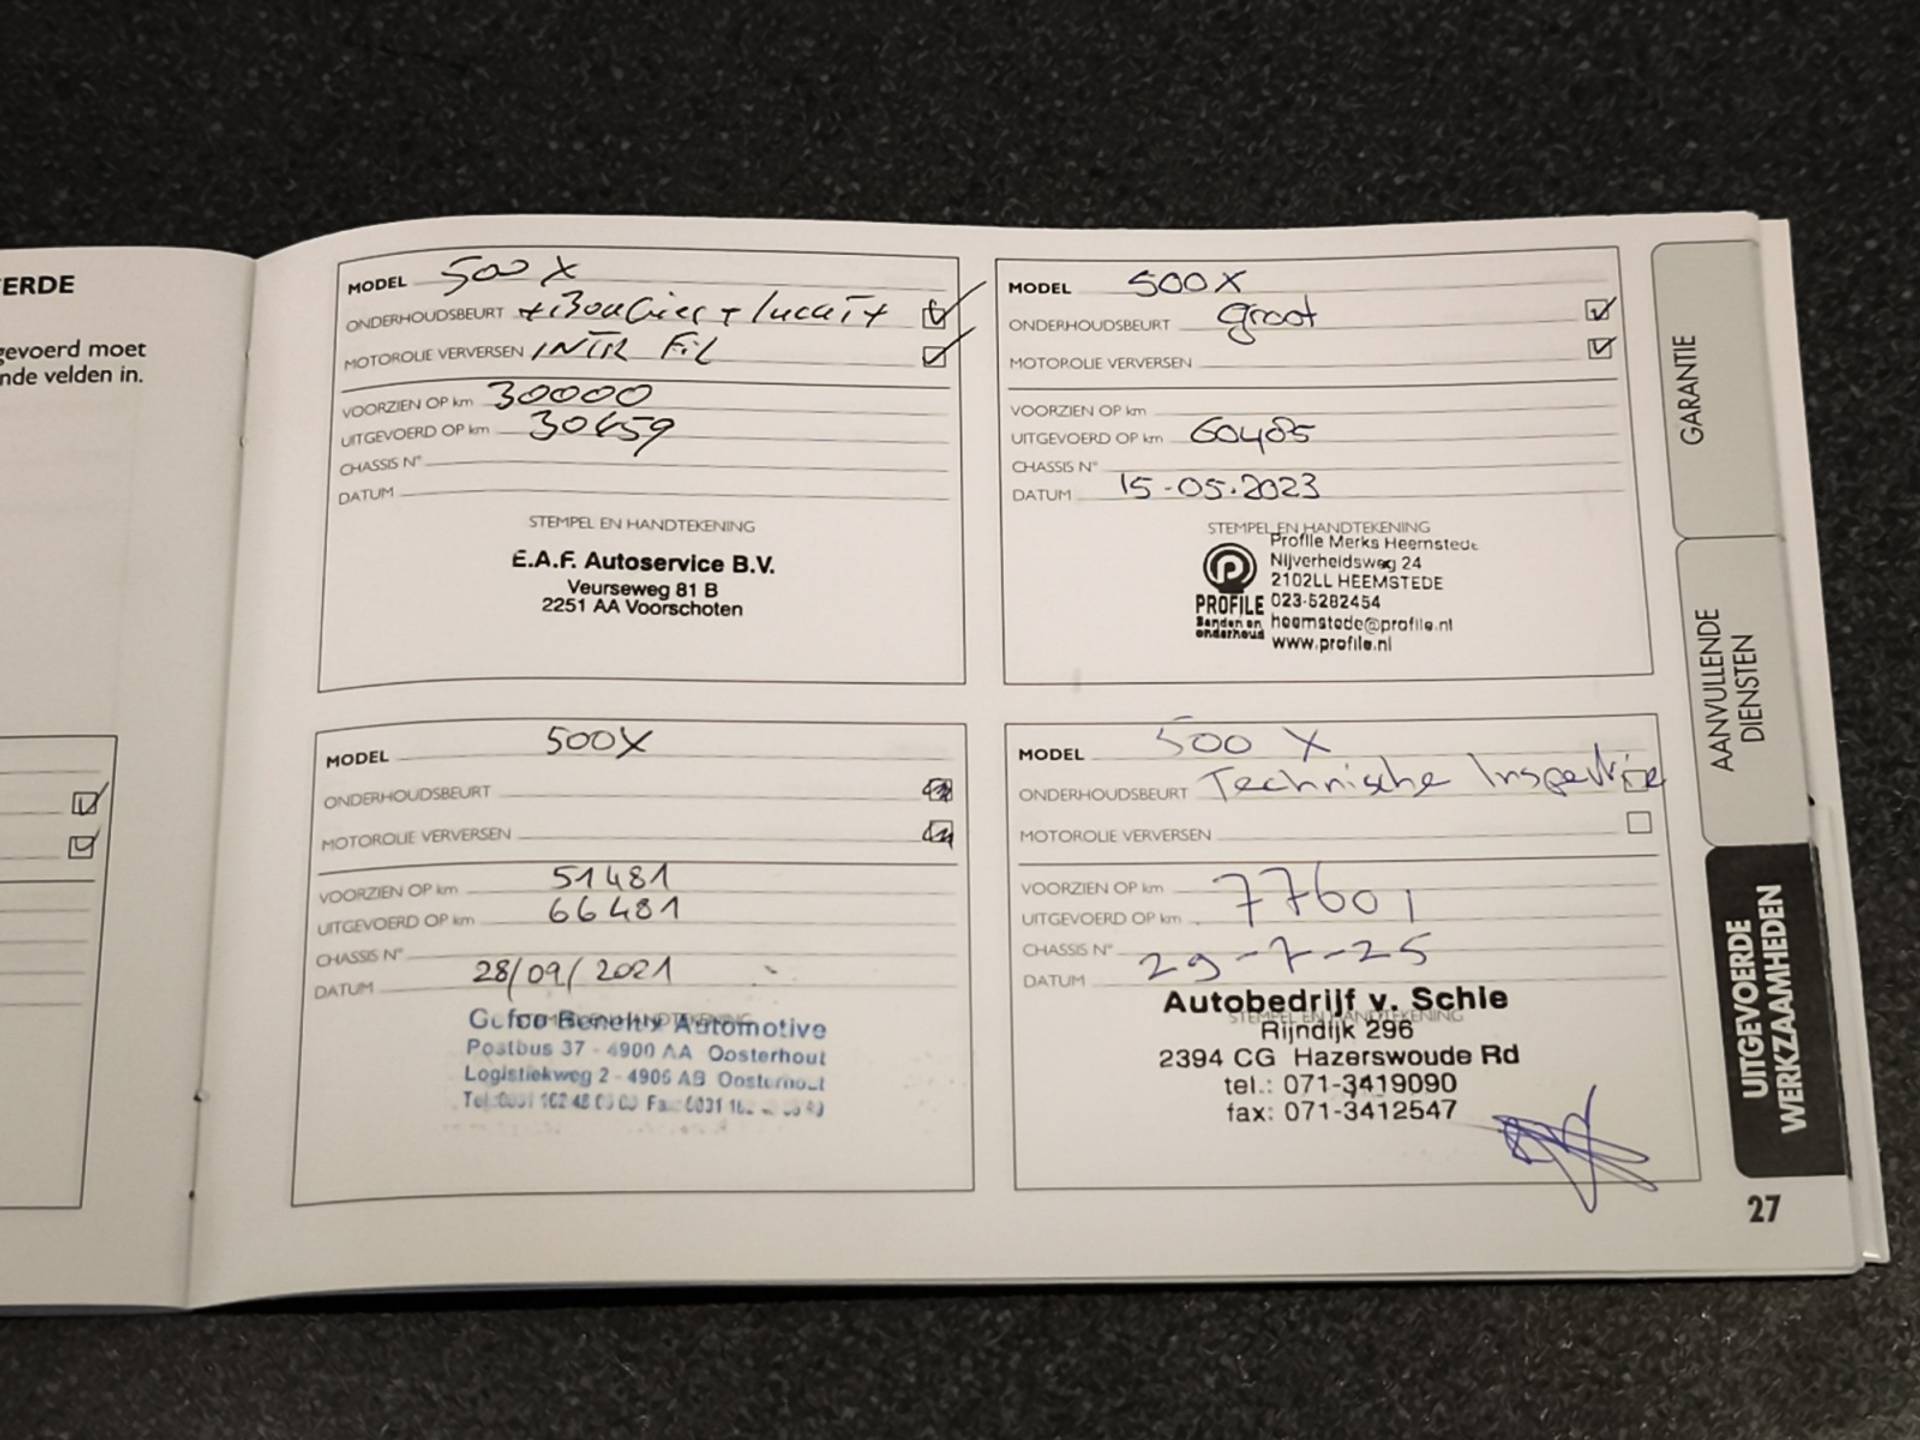 ERDE
gevoerd moet
nde velden in.
MODEL 500 X
ONDERHOUDSBEURT + Bougies + lucht
MOTOROLIE VERVERSEN INTR FiL
VOORZIEN OP km 30000
UITGEVOERD OP km 30459
CHASSIS N°
DATUM
STEMPEL EN HANDTEKENING
E.A.F. Autoservice B.V.
Veurseweg 81 B
2251 AA Voorschoten
MODEL 500X
ONDERHOUDSBEURT groot
MOTOROLIE VERVERSEN
VOORZIEN OP km
UITGEVOERD OP km 60485
CHASSIS N°
DATUM 15-05.2023
STEMPEL EN HANDTEKENING
Profile Merks Heemstede
Nijverheidsweg 24
2102LL HEEMSTEDE
PROFILE 023-5282454
Banden en heemstede@profile.nl
onderhoud www.profile.nl
MODEL 500X
ONDERHOUDSBEURT
MOTOROLIE VERVERSEN
VOORZIEN OP km 51481
UITGEVOERD OP km 66481
CHASSIS N°
DATUM 28/09/2021
STEMPEL EN HANDTEKENING
Automotive
Postbus 37 - 4900 AA Oosterhout
Logistiekweg 2 - 4906 AB Oosterhout
MODEL 500 X
ONDERHOUDSBEURT Technische Inspectie
MOTOROLIE VERVERSEN
VOORZIEN OP km 77601
UITGEVOERD OP km
CHASSIS N°
DATUM 29-7-25
STEMPEL EN HANDTEKENING
Autobedrijf v. Schie
Rijndijk 296
2394 CG Hazerswoude Rd
tel.: 071-3419090
fax: 071-3412547
GARANTIE
AANVULLENDE
DIENSTEN
UITGEVOERDE
WERKZAAMHEDEN
27